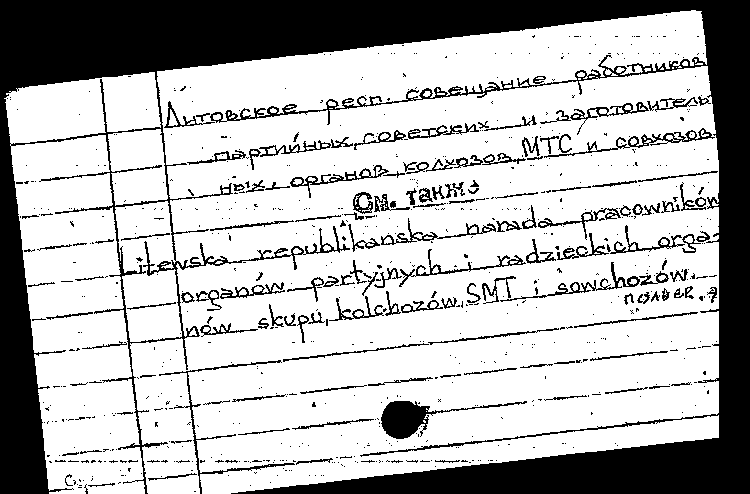 Литовское респ. совещание работников
партийных, советских и заготовитель
ных. органов, колхозов, МТС и совхозов.
См. также
Litewska republikańska narada pracowników
organów partyjnych i radzieckich orga-
nów skupu, kolchozów, SMT i sowchozów.